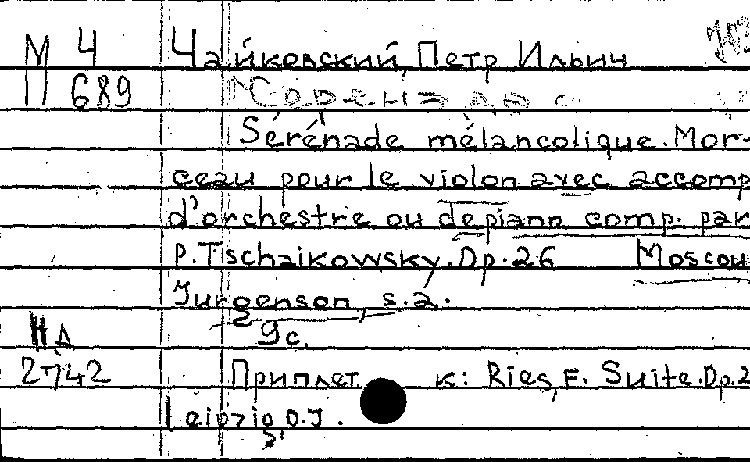 М 4 Чайковский, Петр Ильич
П 689
Sérénade mélancolique. Mor-
ceau pour le violon avec accomp
d'orchestre ou de piano comp. par
P. Tschaikowsky. Op. 26 Moscou
Jurgenson, s.a.
9 с.
НД
2742 Приплет. к: Ries, F. Suite. Op. 2
Leipzig, O.J.